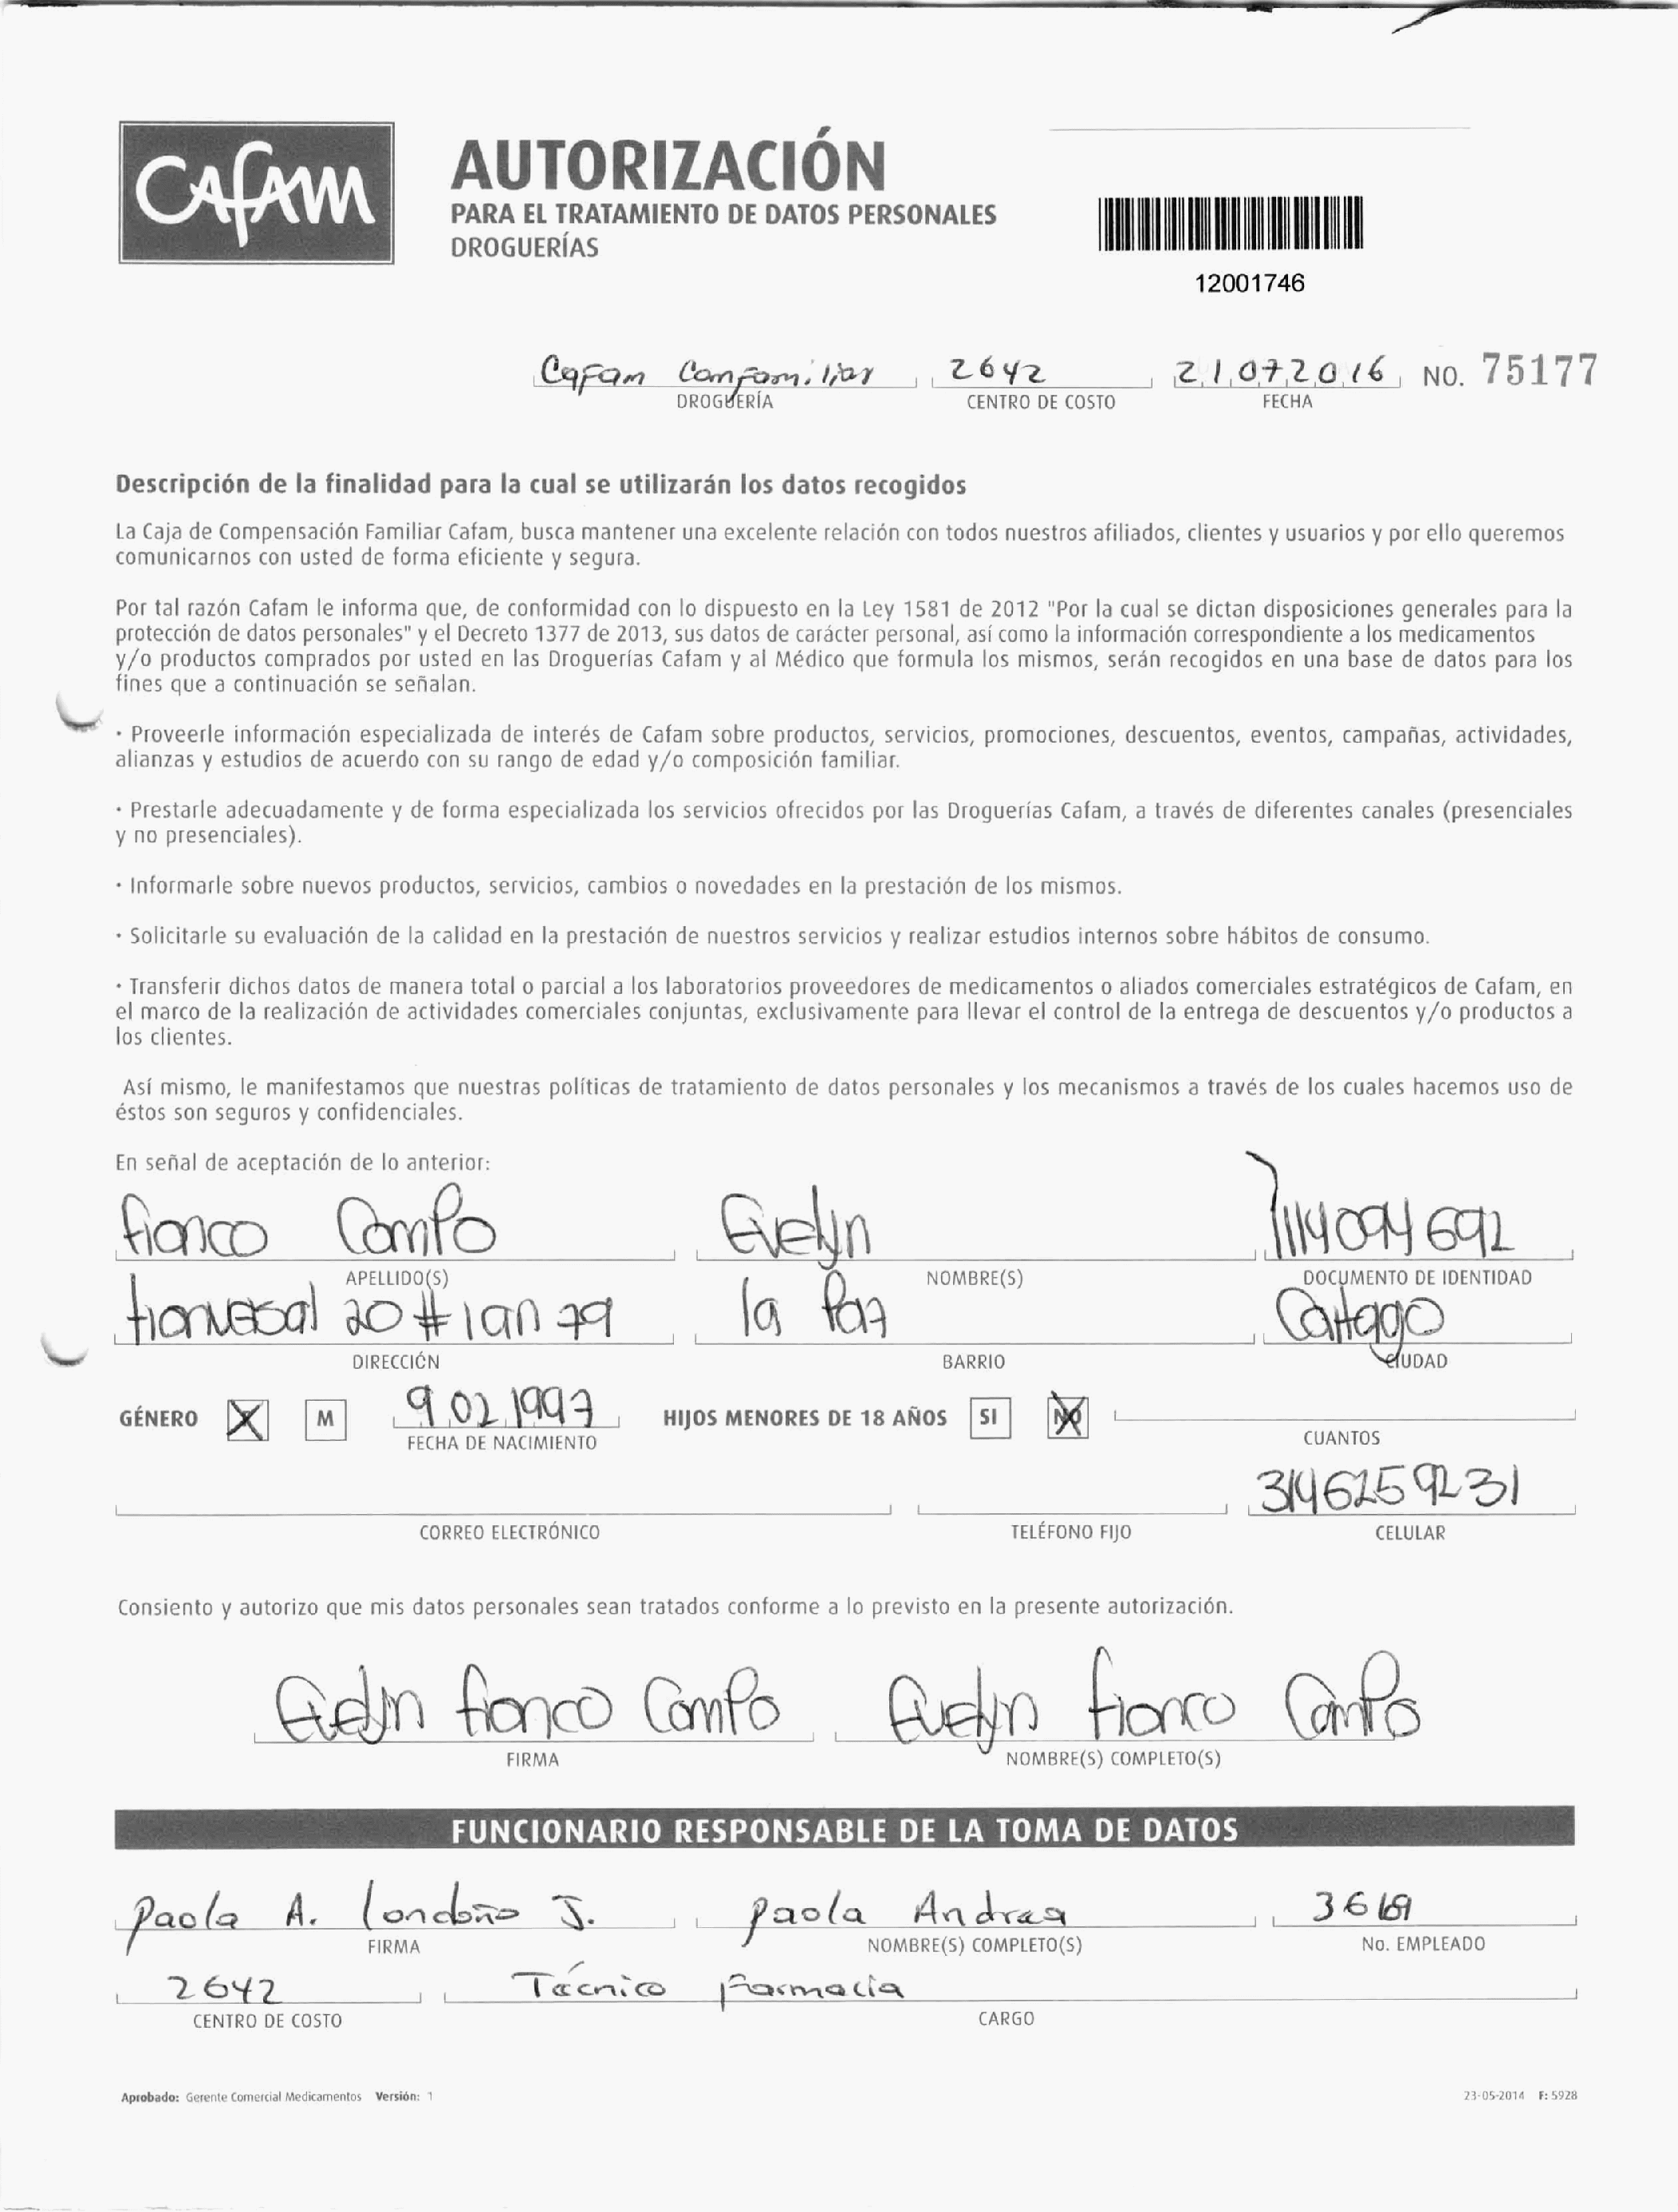 CAFAM
AUTORIZACIÓN
PARA EL TRATAMIENTO DE DATOS PERSONALES
DROGUERÍAS
12001746
Cafam Comfamiliar 2642 21072016 NO. 75177
DROGUERÍA CENTRO DE COSTO FECHA
Descripción de la finalidad para la cual se utilizarán los datos recogidos
La Caja de Compensación Familiar Cafam, busca mantener una excelente relación con todos nuestros afiliados, clientes y usuarios y por ello queremos
comunicarnos con usted de forma eficiente y segura.
Por tal razón Cafam le informa que, de conformidad con lo dispuesto en la Ley 1581 de 2012 "Por la cual se dictan disposiciones generales para la
protección de datos personales" y el Decreto 1377 de 2013, sus datos de carácter personal, así como la información correspondiente a los medicamentos
y/o productos comprados por usted en las Droguerías Cafam y al Médico que formula los mismos, serán recogidos en una base de datos para los
fines que a continuación se señalan.
· Proveerle información especializada de interés de Cafam sobre productos, servicios, promociones, descuentos, eventos, campañas, actividades,
alianzas y estudios de acuerdo con su rango de edad y/o composición familiar.
· Prestarle adecuadamente y de forma especializada los servicios ofrecidos por las Droguerías Cafam, a través de diferentes canales (presenciales
y no presenciales).
· Informarle sobre nuevos productos, servicios, cambios o novedades en la prestación de los mismos.
· Solicitarle su evaluación de la calidad en la prestación de nuestros servicios y realizar estudios internos sobre hábitos de consumo.
· Transferir dichos datos de manera total o parcial a los laboratorios proveedores de medicamentos o aliados comerciales estratégicos de Cafam, en
el marco de la realización de actividades comerciales conjuntas, exclusivamente para llevar el control de la entrega de descuentos y/o productos a
los clientes.
Así mismo, le manifestamos que nuestras políticas de tratamiento de datos personales y los mecanismos a través de los cuales hacemos uso de
éstos son seguros y confidenciales.
En señal de aceptación de lo anterior:
franco Campo Evelyn 1114094692
APELLIDO(S) NOMBRE(S) DOCUMENTO DE IDENTIDAD
tranvesal 20 # 19n 79 la Paz Cartago
DIRECCIÓN BARRIO CIUDAD
GÉNERO X M 9 02 1997 HIJOS MENORES DE 18 AÑOS SI NO
FECHA DE NACIMIENTO CUANTOS
3146259231
CORREO ELECTRÓNICO TELÉFONO FIJO CELULAR
Consiento y autorizo que mis datos personales sean tratados conforme a lo previsto en la presente autorización.
Evelyn franco Campo Evelyn franco Campo
FIRMA NOMBRE(S) COMPLETO(S)
FUNCIONARIO RESPONSABLE DE LA TOMA DE DATOS
Paola A. Londoño J. Paola Andrea
FIRMA NOMBRE(S) COMPLETO(S) No. EMPLEADO
2642 Técnico Farmacia
CENTRO DE COSTO CARGO
Aprobado: Gerente Comercial Medicamentos Versión: 1 23-05-2014 F: 5928